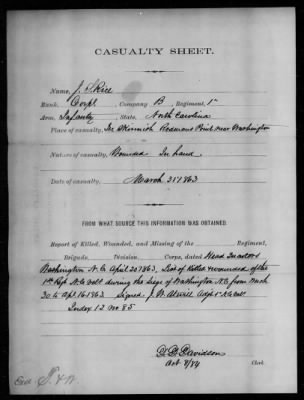 CASUALTY SHEET.
Name, J. S. Rice
Rank, Corpl Company B, Regiment, 1st
Arm, Infantry State, North Carolina
Place of casualty, In Skirmish Rodmans Point near Washington
Nature of casualty, Wounded In hand
Date of casualty, March 31st 1863
FROM WHAT SOURCE THIS INFORMATION WAS OBTAINED.
Report of Killed, Wounded, and Missing of the Regiment,
Brigade, Division, Corps, dated Head Quarters
Washington N.C. April 20 1863. List of Killed & wounded of the
1st Regt N.C. Vols during the Siege of Washington N.C. from March
30 to Apl. 16 1863 Signed J. W. Atwill Adjt 1st N.C. Vols
Index 12 no 85
Davidson
Oct 8/84 Clerk.